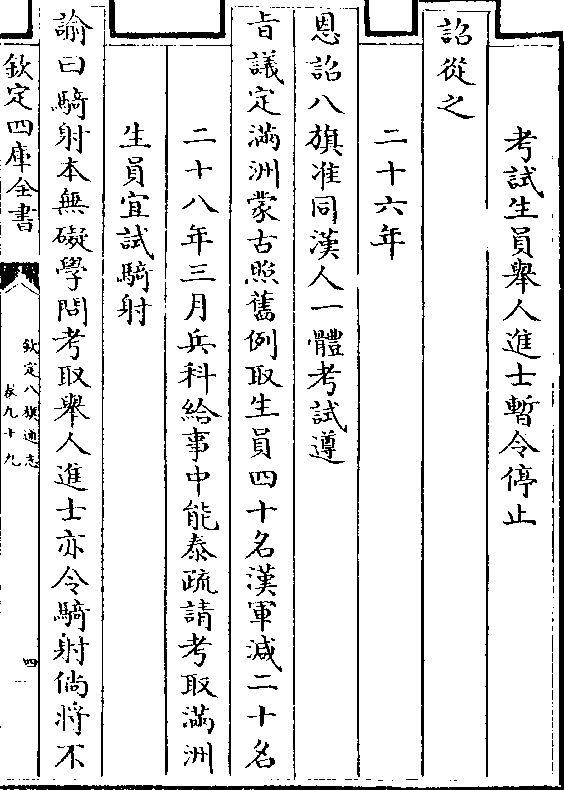 考試生員舉人進士暫令停止
詔從之
二十六年
恩詔八旗准同漢人一體考試遵
旨議定滿洲蒙古照舊例取生員四十名漢軍減二十名
二十八年三月兵科給事中能泰疏請考取滿洲
生員宜試騎射
諭曰騎射本無礙學問考取舉人進士亦令騎射倘將不
欽定四庫全書
欽定八旗通志
卷九十九
四